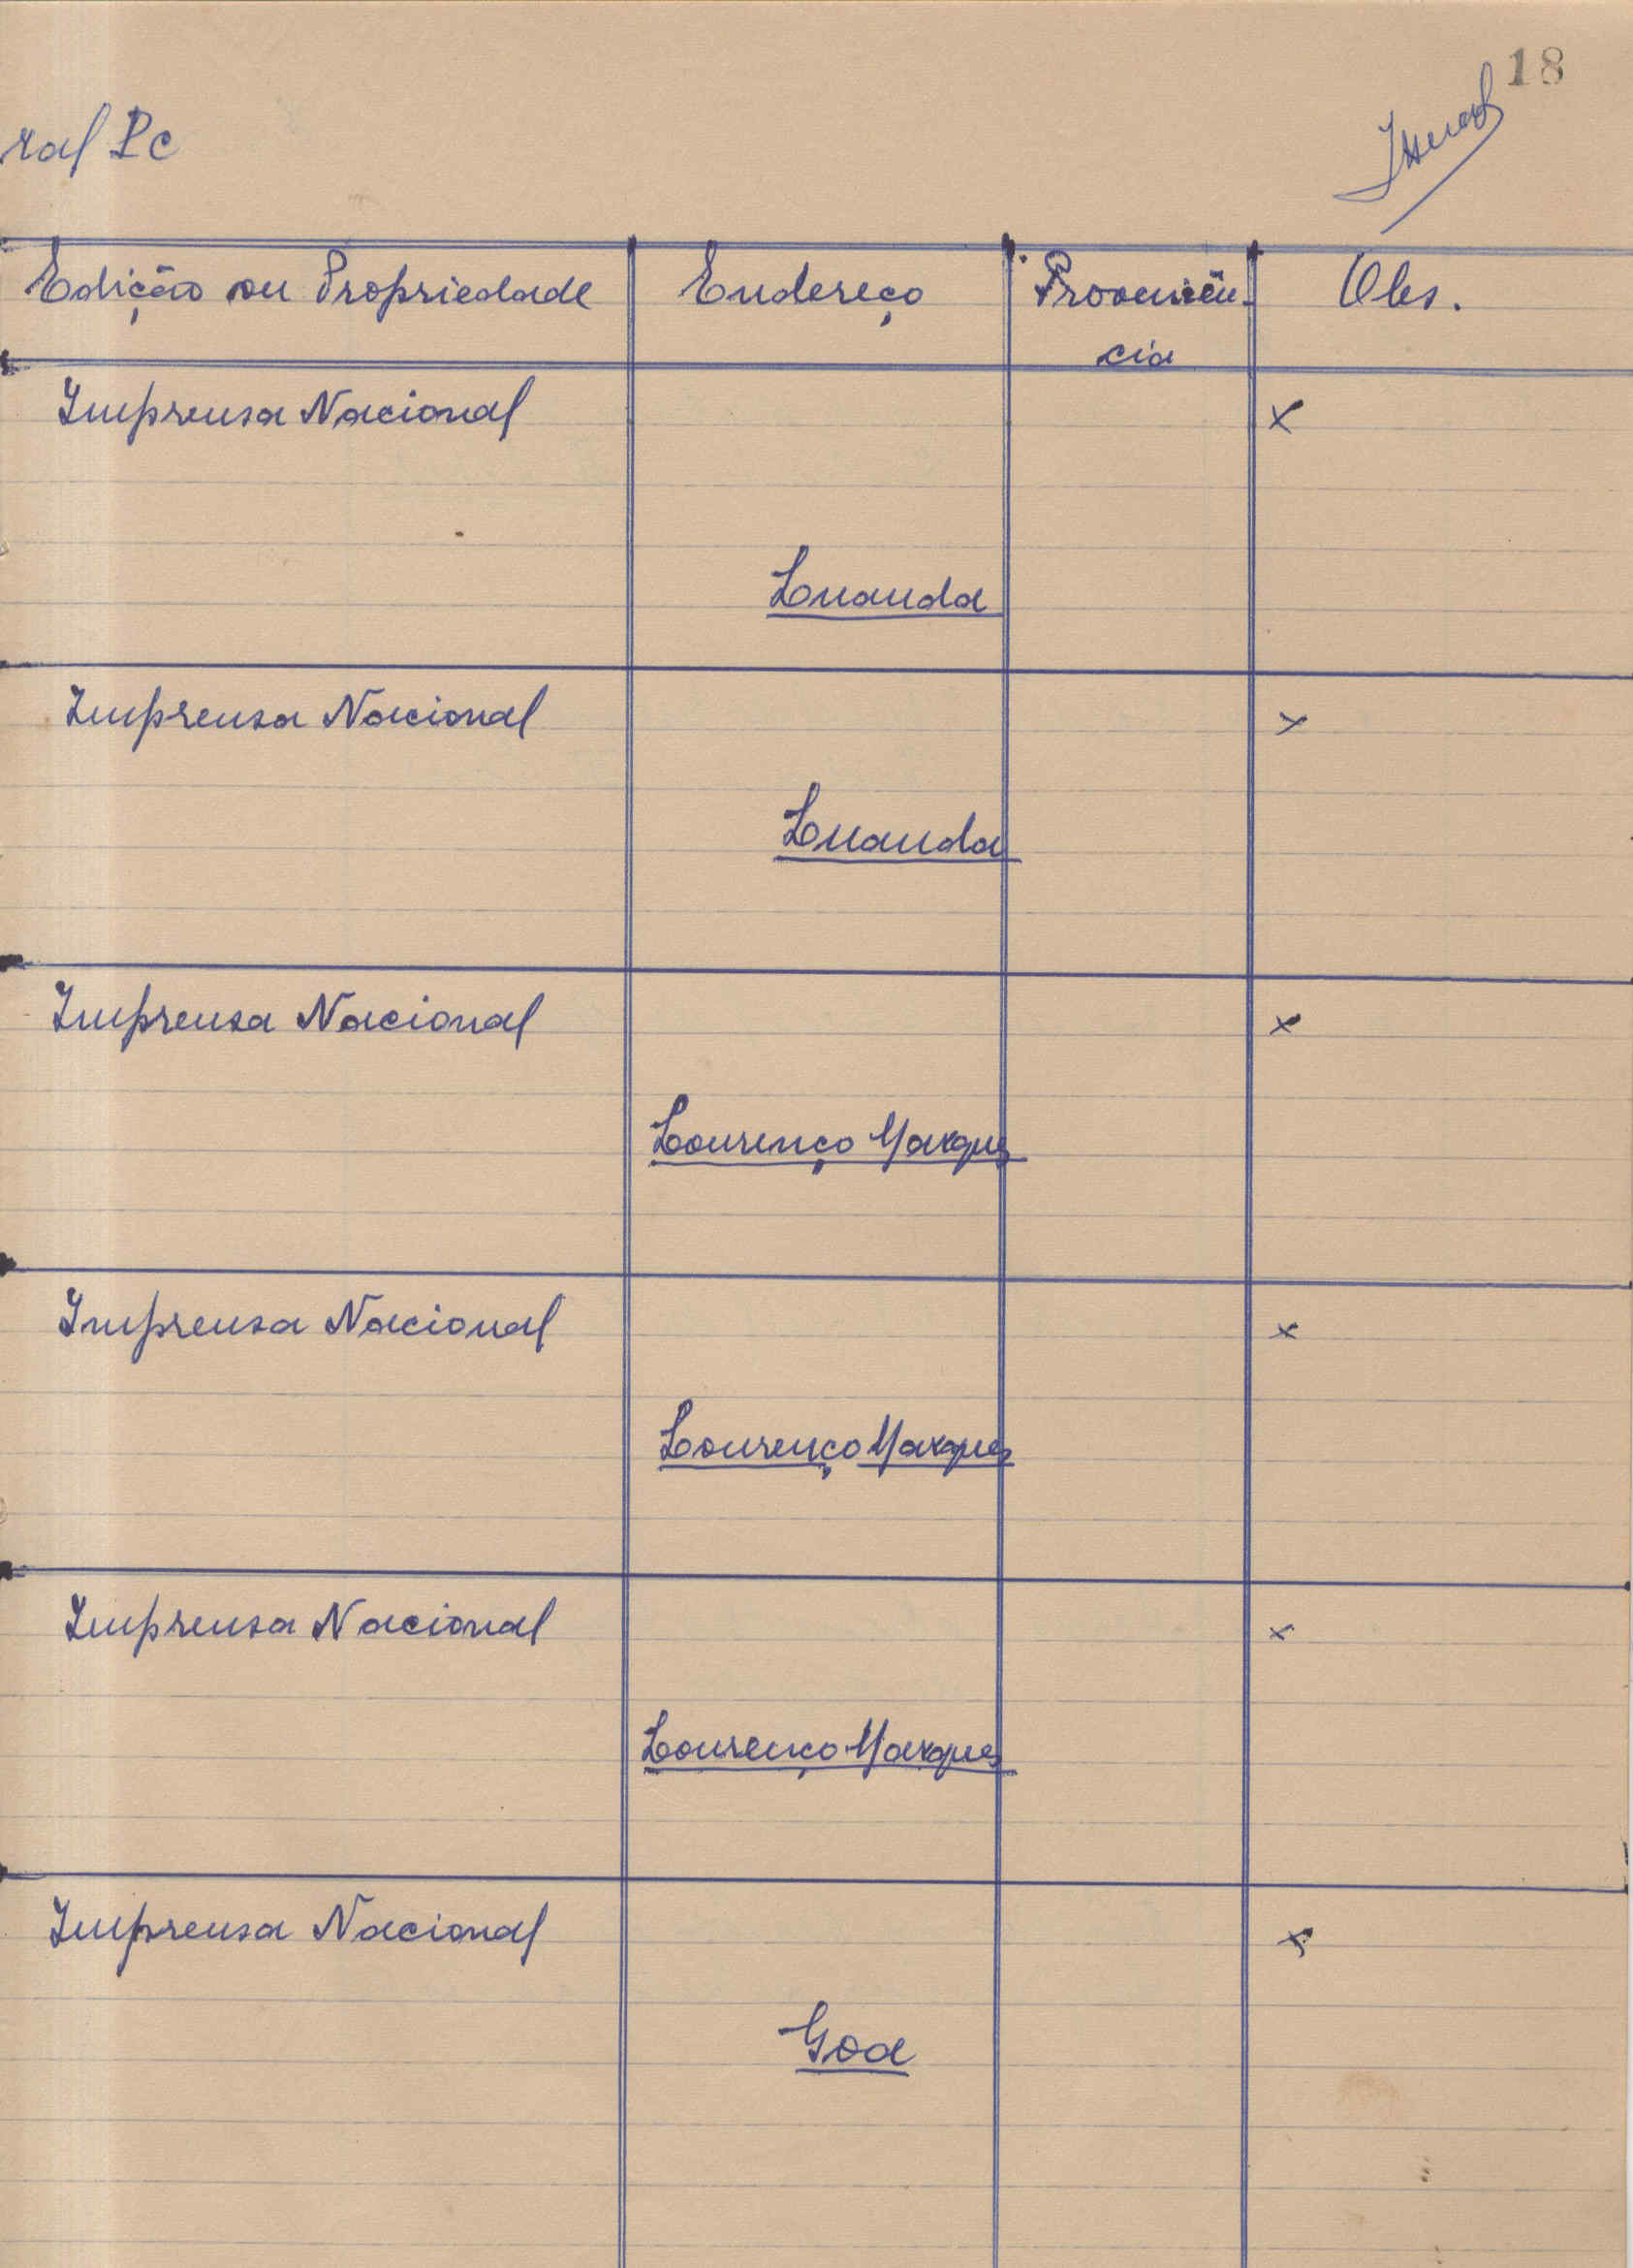 18
ral Pc
Edição ou Propriedade Endereço Proveniên-
cia Obs.
Imprensa Nacional x
Luanda
Imprensa Nacional x
Luanda
Imprensa Nacional x
Lourenço Marques
Imprensa Nacional x
Lourenço Marques
Imprensa Nacional x
Lourenço Marques
Imprensa Nacional x
Goa